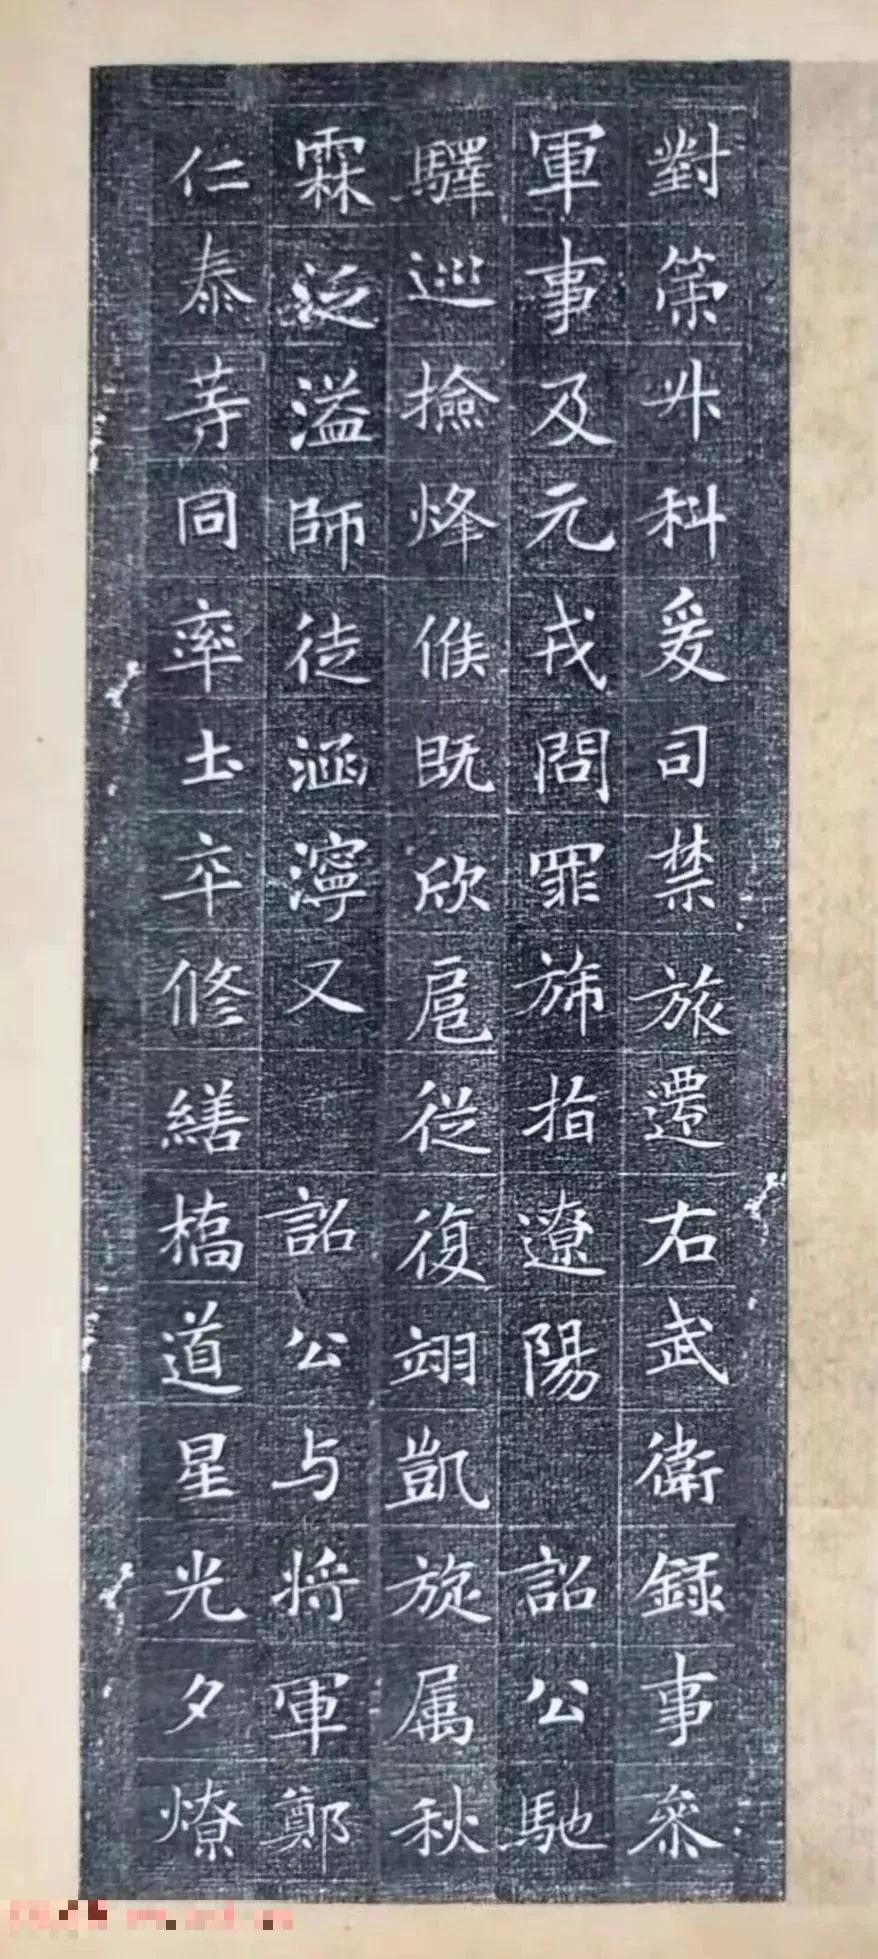 對策升科爰司禁旅遷右武衛録事叅
軍事及元戎問罪斾指遼陽詔公馳
驛巡撿烽候既欣扈從復翊凱旋属秋
霖泛溢師徒涵濘又詔公与将軍鄭
仁泰等同率土卒修繕橋道星光夕燎